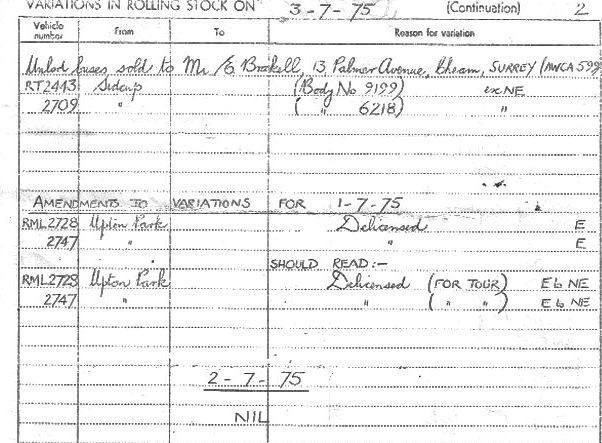 VARIATIONS IN ROLLING STOCK ON 3-7-75 (Continuation) 2
Vehicle number From To Reason for variation
buses sold to Mr 13, Palmer Avenue, Cheam, SURREY
RT2443 Sidcup (Body No 9199) ex NE
2709 " ( " 6218) "
AMENDMENTS TO VARIATIONS FOR 1-7-75
RML2728 Upton Park Delicensed E
2747 " " E
SHOULD READ:-
RML2728 Upton Park Delicensed (FOR TOUR) E to NE
2747 " " ( " " ) E to NE
2-7-75
NIL